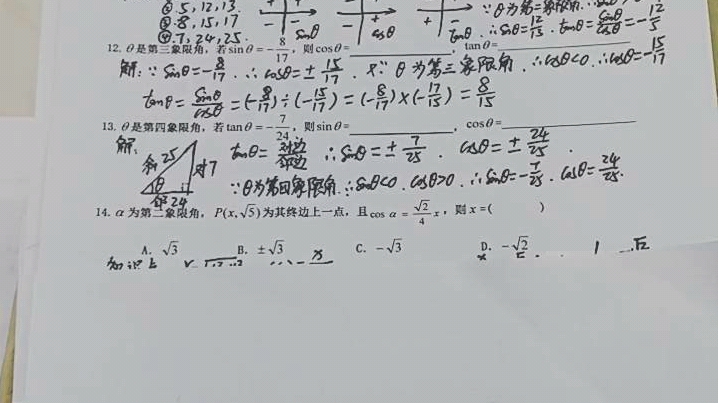 ② 5, 12, 13.
③ 8, 15, 17
④ 7, 24, 25. sinθ cosθ tanθ ∴ sinθ = 12/13. tanθ = sinθ/cosθ = -12/5
12. θ是第三象限角, 若 sinθ = -8/17, 则 cosθ = ________, tanθ = ________
解: ∵ sinθ = -8/17. ∴ cosθ = ± 15/17. 又∵ θ为第三象限角. ∴ cosθ<0. ∴ cosθ = -15/17
tanθ = sinθ/cosθ = (-8/17) ÷ (-15/17) = (-8/17) × (-17/15) = 8/15
13. θ是第四象限角, 若 tanθ = -7/24, 则 sinθ = ________, cosθ = ________
解: 斜 25 对 7 θ 邻 24 tanθ = 对边/邻边 ∴ sinθ = ± 7/25. cosθ = ± 24/25.
∵ θ为第四象限角. ∴ sinθ<0. cosθ>0. ∴ sinθ = -7/25. cosθ = 24/25.
14. α为第二象限角, P(x, √5)为其终边上一点, 且 cos α = √2/4 x, 则 x =( )
A. √3 B. ±√3 C. -√3 D. -√2